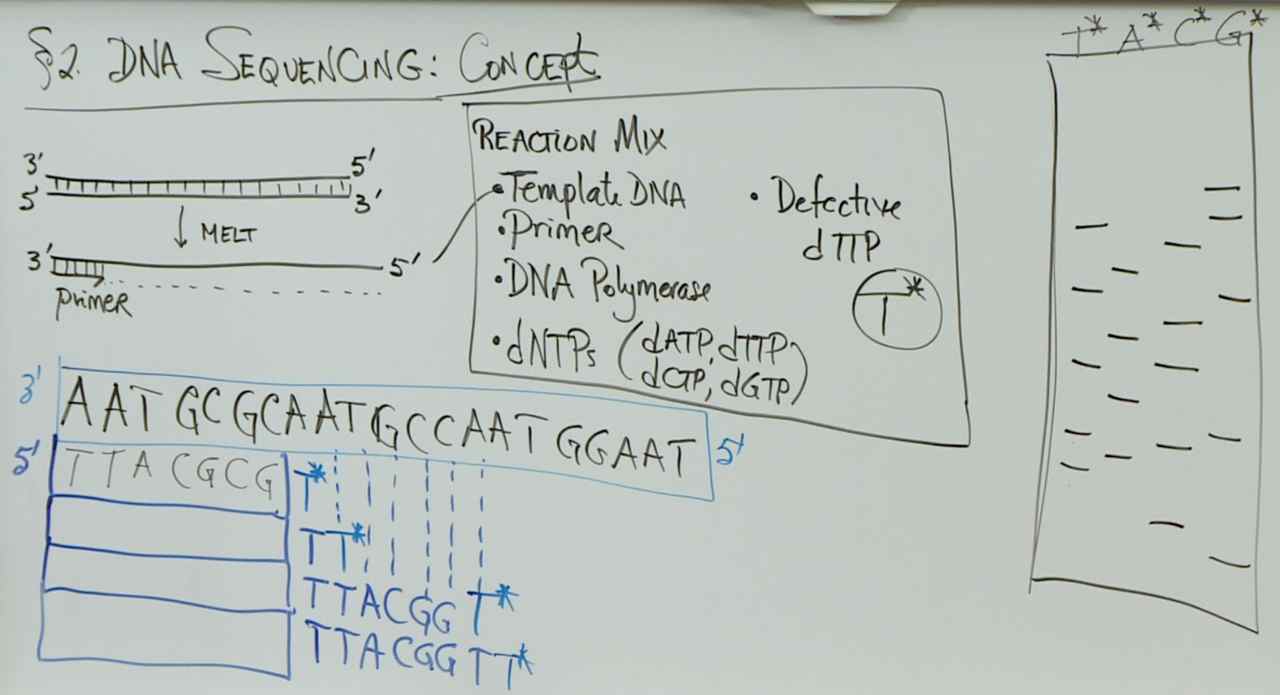 §2. DNA SEQUENCING: CONCEPT
3' 5'
5' 3'
MELT
3' 5'
primer
REACTION MIX
• Template DNA
• Primer
• DNA Polymerase
• dNTPs (dATP, dTTP,
dCTP, dGTP)
• Defective
dTTP
T*
3' AATGCGCAATGCCAATGGAAT 5'
5' TTACGCG T*
TT*
TTACGGT*
TTACGGTT*
T* A* C* G*